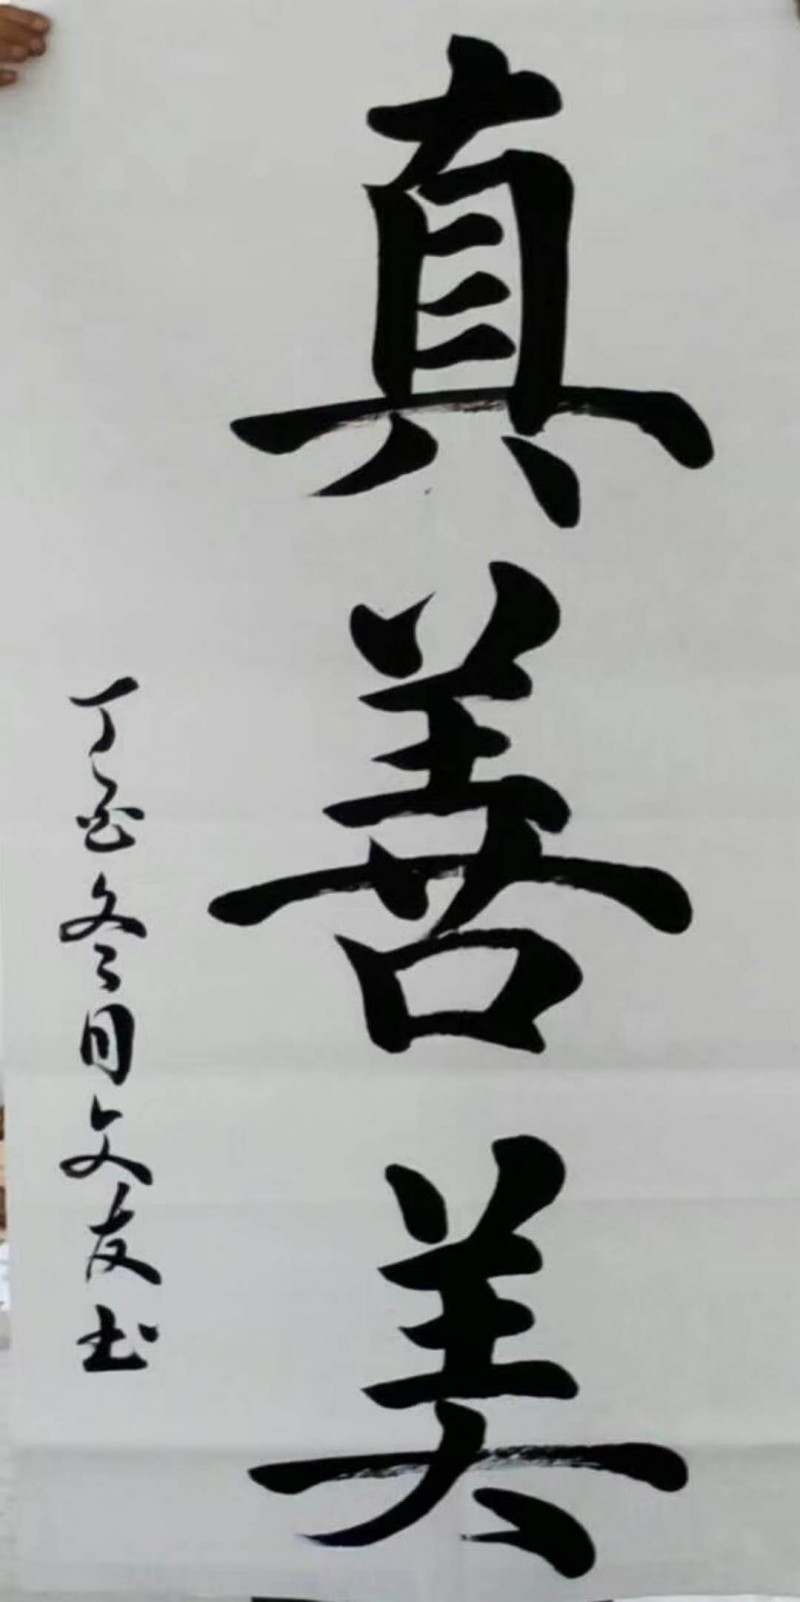 真善美
丁酉冬月文友书